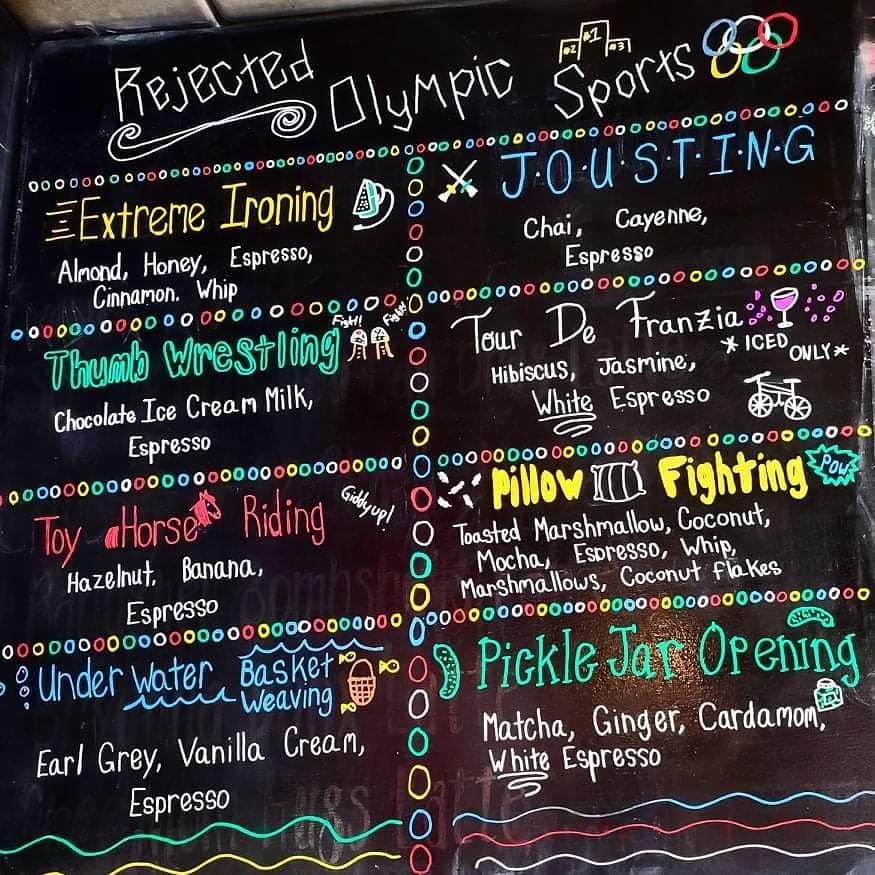 Rejected Olympic Sports
#2 #1 #3
Extreme Ironing
Almond, Honey, Espresso,
Cinnamon. Whip
Thumb Wrestling
Fight! Fight!
Chocolate Ice Cream Milk,
Espresso
Toy Horse Riding
Giddyup!
Hazelnut, Banana,
Espresso
Under water Basket
Weaving
Earl Grey, Vanilla Cream,
Espresso
J.O.U.S.T.I.N.G
Chai, Cayenne,
Espresso
Tour De Franzia
*ICED ONLY*
Hibiscus, Jasmine,
White Espresso
Pillow Fighting
POW
Toasted Marshmallow, Coconut,
Mocha, Espresso, Whip,
Marshmallows, Coconut flakes
Pickle Jar Opening
Matcha, Ginger, Cardamom,
White Espresso